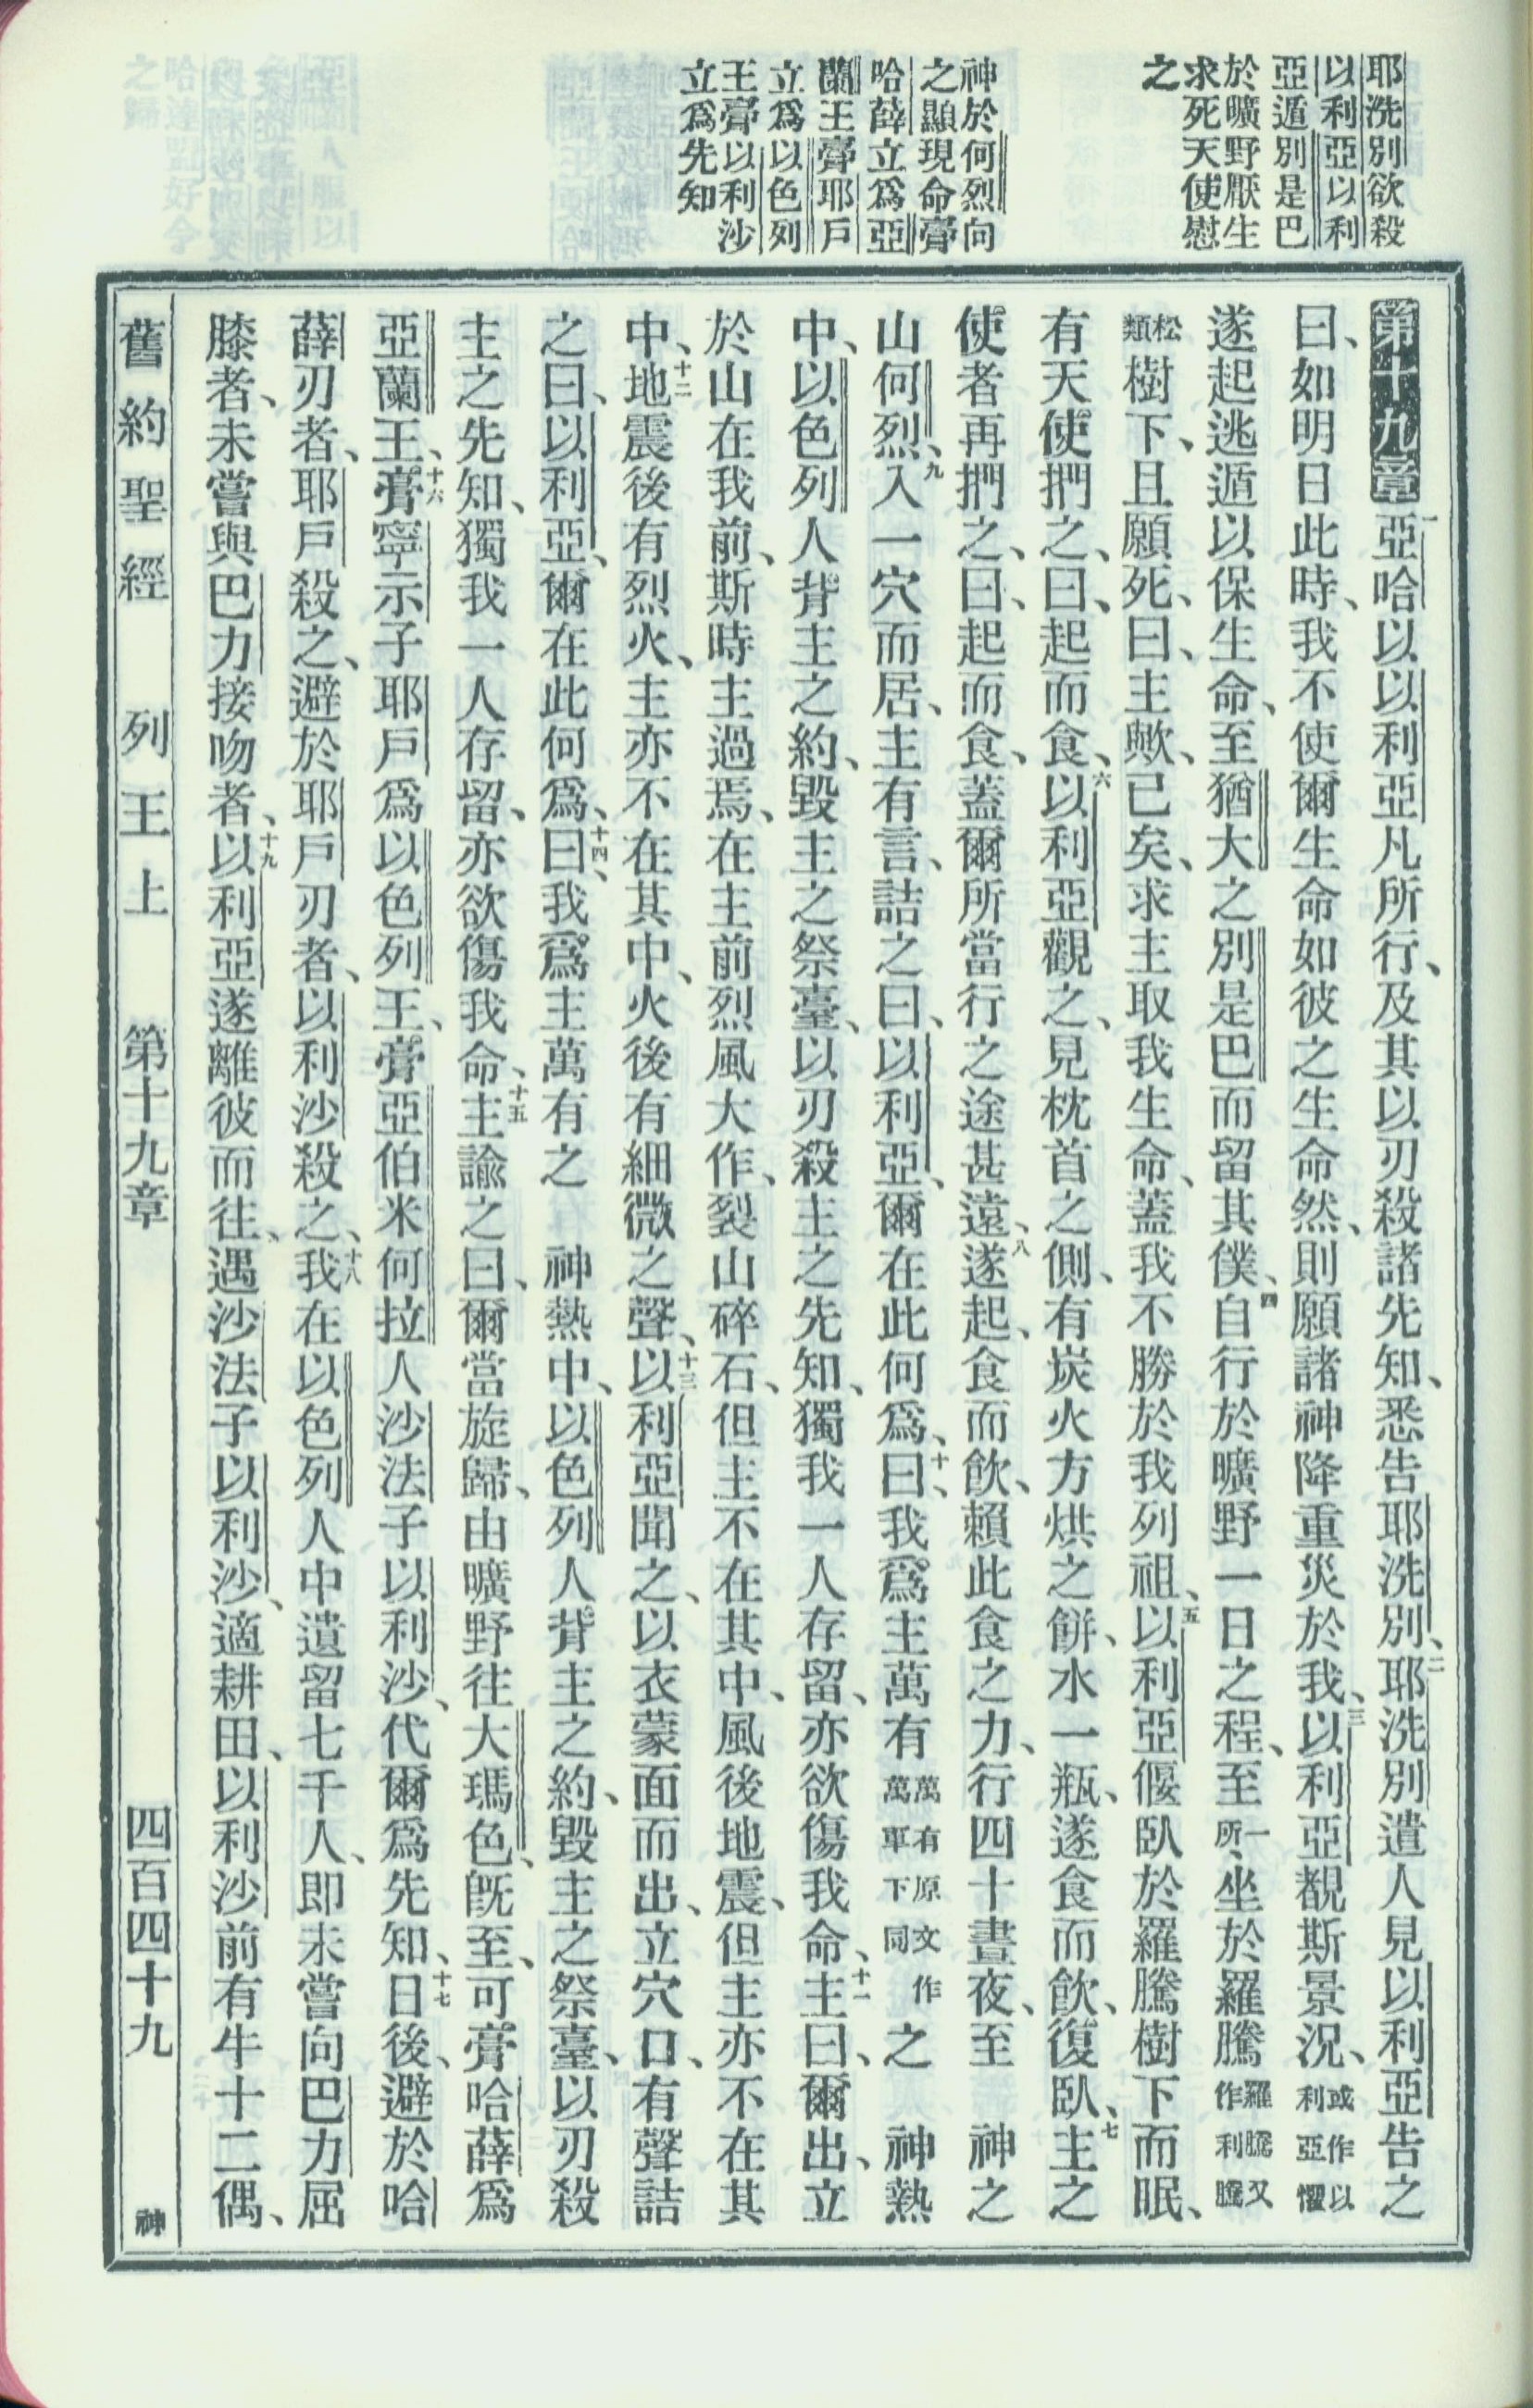 耶洗別欲殺
以利亞以利
亞遁別是巴
於曠野厭生
求死天使慰
之
神於何烈向
之顯現命膏
哈薛立爲亞
蘭王膏耶戶
立爲以色列
王膏以利沙
立爲先知
第十九章一亞哈以以利亞凡所行、及其以刃殺諸先知、悉告耶洗別、二耶洗別遣人見以利亞告之
曰、如明日此時、我不使爾生命如彼之生命然、則願諸神降重災於我、三以利亞覩斯景況、或作以利亞懼
遂起逃遁以保生命、至猶大之別是巴而留其僕、四自行於曠野一日之程、至一所、坐於羅騰羅騰又作利騰
松類樹下、且願死、曰、主歟、已矣、求主取我生命、蓋我不勝於我列祖、五以利亞偃臥於羅騰樹下而眠、
有天使捫之、曰、起而食、六以利亞觀之、見枕首之側、有炭火方烘之餅、水一瓶、遂食而飲、復臥、七主之
使者再捫之、曰、起而食、蓋爾所當行之途甚遠、八遂起、食而飲、賴此食之力、行四十晝夜、至 神之
山何烈、九入一穴而居、主有言、詰之曰、以利亞、爾在此何爲、十曰、我爲主萬有萬有原文作萬軍下同之 神熱
中、以色列人背主之約、毀主之祭臺、以刃殺主之先知、獨我一人存留、亦欲傷我命、十一主曰、爾出、立
於山在我前、斯時主過焉、在主前烈風大作、裂山碎石、但主不在其中、風後地震、但主亦不在其
中、十二地震後有烈火、主亦不在其中、火後有細微之聲、十三以利亞聞之、以衣蒙面而出、立穴口、有聲詰
之曰、以利亞、爾在此何爲、十四曰、我爲主萬有之 神熱中、以色列人背主之約、毀主之祭臺、以刃殺
主之先知、獨我一人存留、亦欲傷我命、十五主諭之曰、爾當旋歸、由曠野往大瑪色、旣至、可膏哈薛爲
亞蘭王、十六膏寧示子耶戶爲以色列王、膏亞伯米何拉人沙法子以利沙、代爾爲先知、十七日後、避於哈
薛刃者、耶戶殺之、避於耶戶刃者、以利沙殺之、十八我在以色列人中遺留七千人、即未嘗向巴力屈
膝者、未嘗與巴力接吻者、十九以利亞遂離彼而往、遇沙法子以利沙、適耕田、以利沙前有牛十二偶、
舊約聖經 列王上 第十九章 四百四十九 神